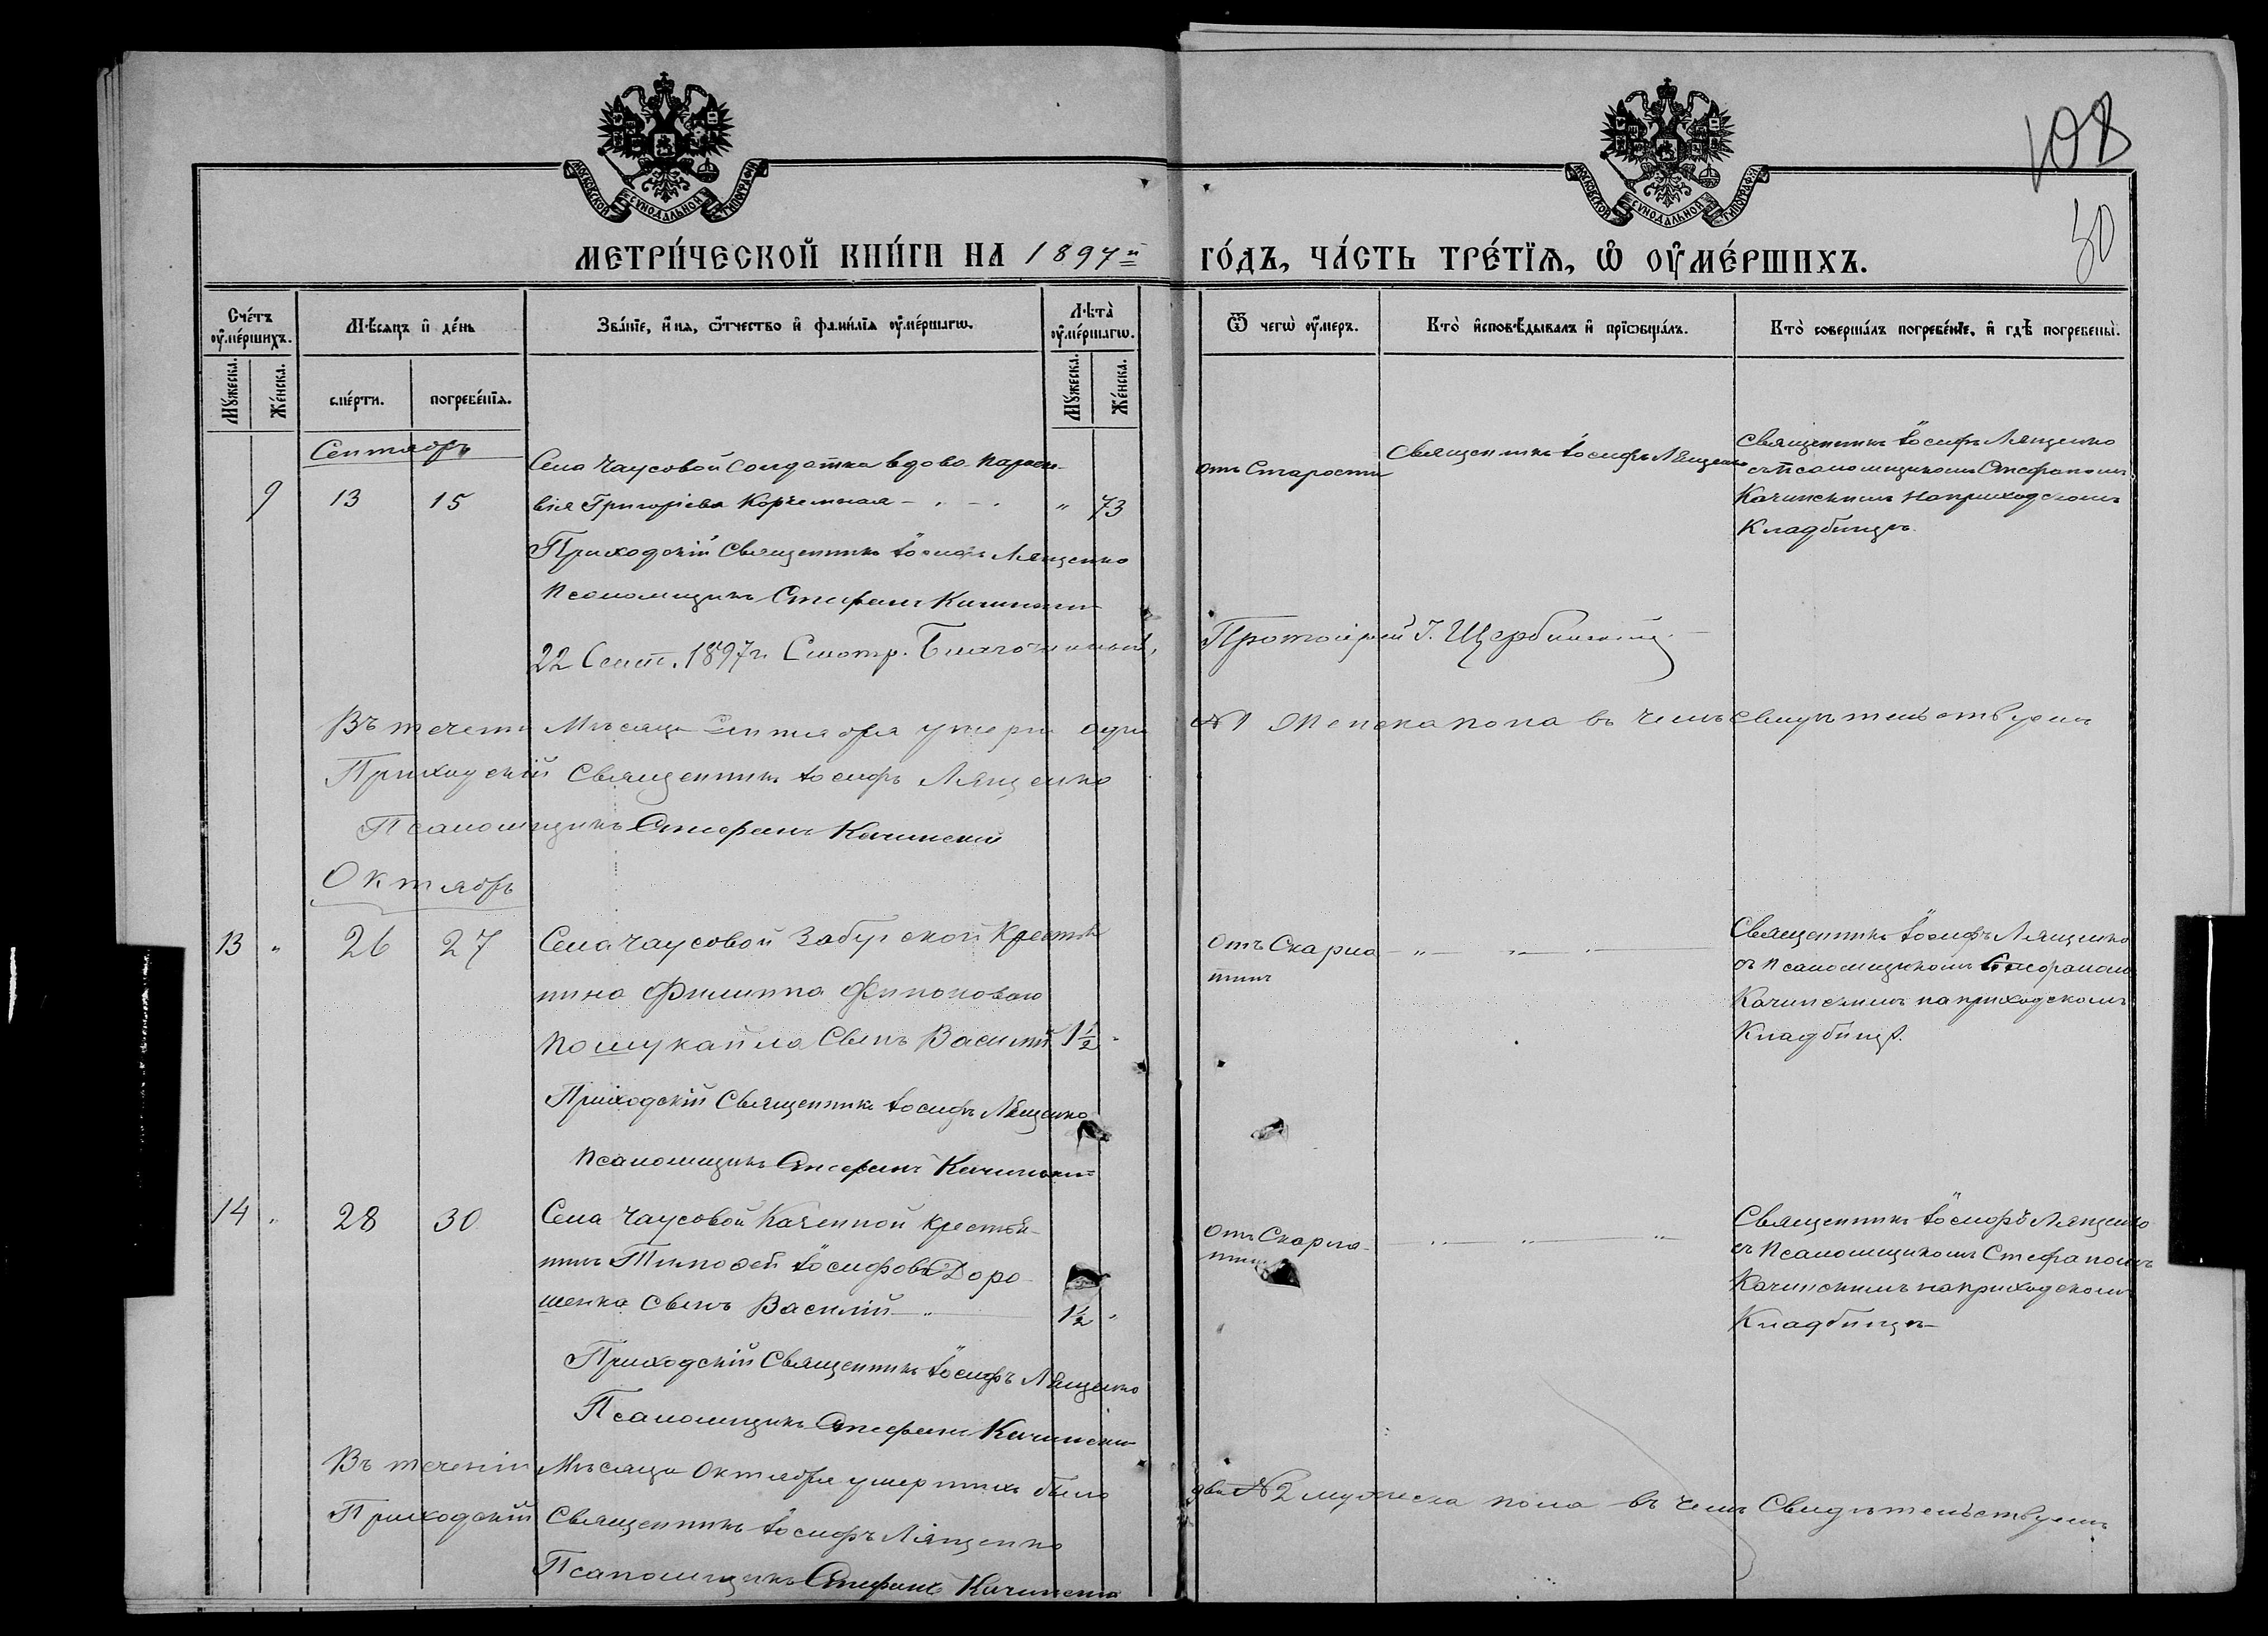 108
50
МОСКОВСКОЙ СУНОДАЛЬНОЙ ТИПОГРАФІИ
МОСКОВСКОЙ СУНОДАЛЬНОЙ ТИПОГРАФІИ
МЕТРИ́ЧЕСКОЙ КНИ́ГИ НА 1897й
ГО́ДЪ, ЧА́СТЬ ТРЕ́ТЇѦ, Ѽ ОУ҆МЕ́РШИХЪ.
Сче́тъ оу҆ме́ршихъ.
Мѣ́сяцъ и҆ де́нь
Зва́нїе, и҆́мя, ѻ҆́тчество и҆ фами́лїя оу҆ме́ршагѡ.
Лѣ́та̀ оу҆ме́ршагѡ.
Ѿ чегѡ̀ оу҆́меръ.
Кто̀ и҆сповѣ́дывалъ и҆ прїѡбща́лъ.
Кто̀ соверша́лъ погребе́нїе, и҆ гдѣ̀ погребены̀.
Му́жеска.
Же́нска.
сме́рти.
погребе́нїя.
Му́жеска.
Же́нска.
Сентябрь
9 13 15
Села Чаусовой солдатка вдова Параске-
вія Григоріева Корчемная " 73
отъ Старости
Священникъ Іосифъ Лященко
Священникъ Іосифъ Лященко
съ псаломщикомъ Стефаномъ
Качинскимъ на приходскомъ
Кладбищѣ
Приходскій Священникъ Іосифъ Лященко
Псаломщикъ Стефанъ Качинскій
22 Сент. 1897 г. Смотр. Благочинный,
Протоіерей І. Щербинскій
Въ теченіи Мѣсяца Сентября умерш одна
№ 1 Женска пола въ чемъ свидѣтельствуемъ
Приходскій Священникъ Іосифъ Лященко
Псаломщикъ Стефанъ Качинскій
Октябрь
13 " 26 27
Села Чаусовой Забугской Крестья
нина Филиппа Филиповаго
Пошукайло Сынъ Василій 1½ "
отъ Скарла
тины
Священникъ Іосифъ Лященко
съ псаломщикомъ Стефаномъ
Качинскимъ на приходскомъ
Кладбищѣ.
Приходскій Священникъ Іосифъ Лященко
Псаломщикъ Стефанъ Качинскій
14 " 28 30
Села Чаусовой Казенной крестья-
нинъ Тимофей Іосифовъ Доро-
шенка сынъ Василій 1½ "
отъ Скарла-
тины
Священникъ Іосифъ Лященко
съ Псаломщикомъ Стефаномъ
Качинскимъ на приходскомъ
Кладбищѣ
Приходскій Священникъ Іосифъ Лященко
Псаломщикъ Стефанъ Качинскій
Въ теченіи Мѣсяца Октября умершихъ было
два № 2 мужеска пола въ чемъ Свидѣтельствуемъ
Приходскій Священникъ Іосифъ Лященко
Псаломщикъ Стефанъ Качинскій